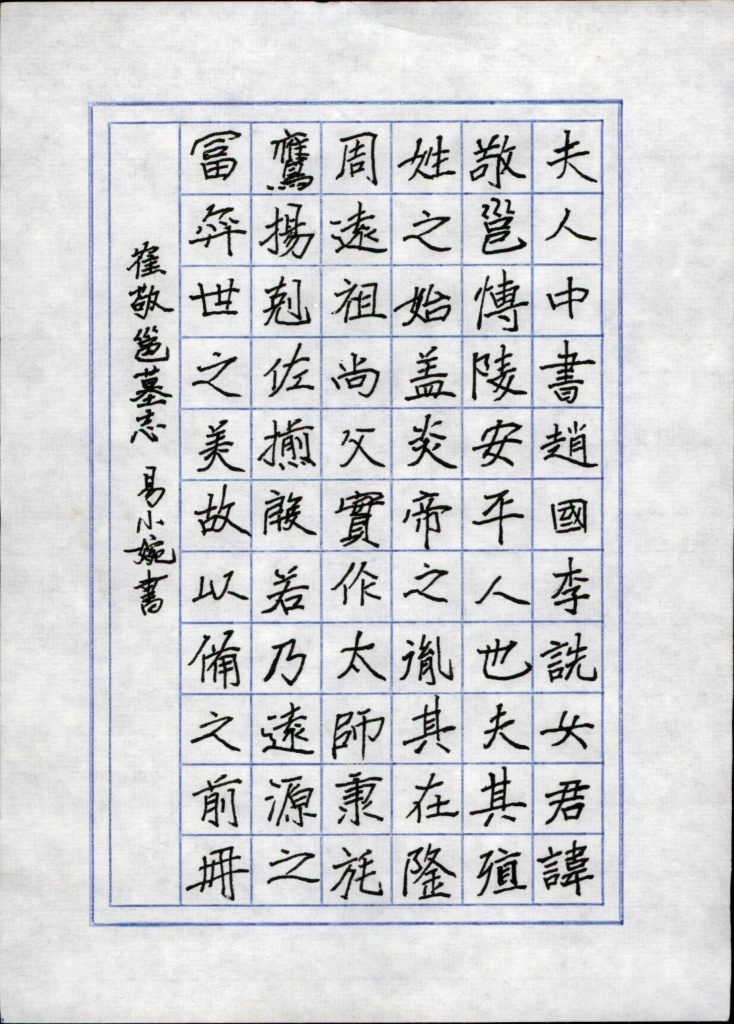 夫人中書趙國李詵女君諱
敬邕愽陵安平人也夫其殖
姓之始盖炎帝之胤其在隆
周遠祖尚父實作太師秉旄
鷹揚剋佐揃殷若乃遠源之
富弈世之美故以俻之前冊
崔敬邕墓志 易小婉書